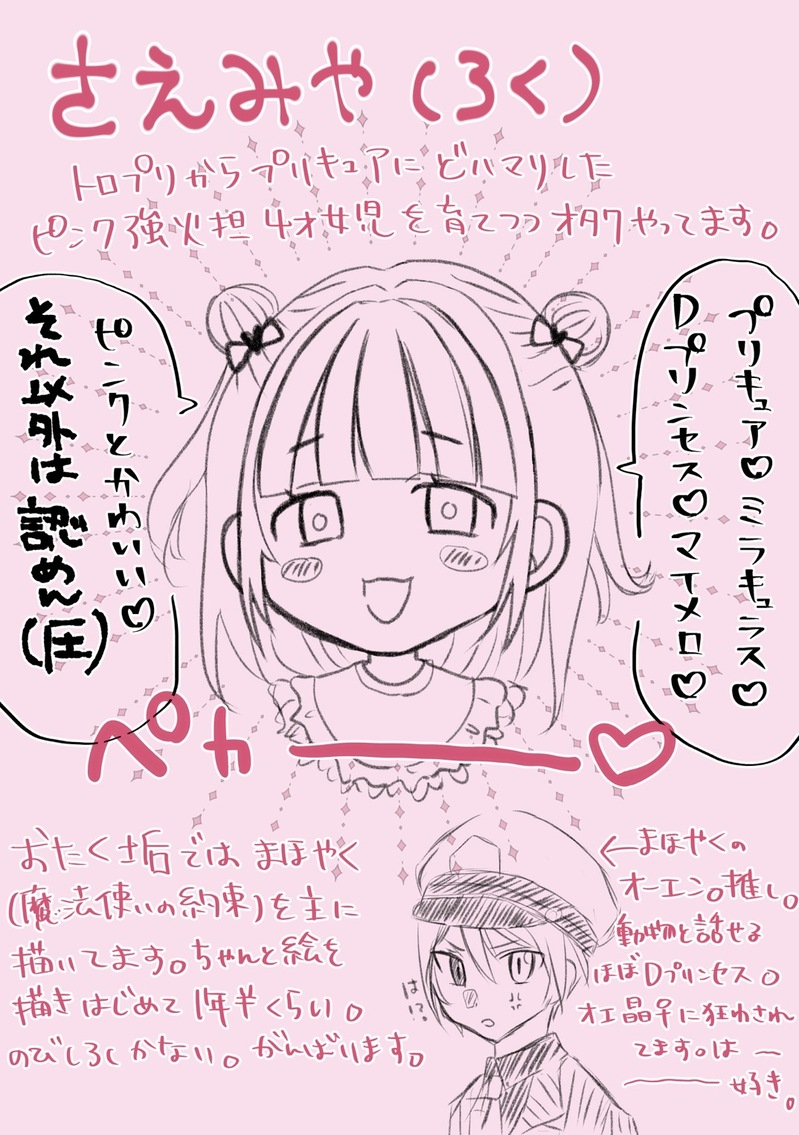 さえみや(ろく)
トロプリからプリキュアにどハマりした
ピンク強火担 4才女児を育てつつオタクやってます。
プリキュア♡ミラキュラス♡
Dプリンセス♡マイメロ♡
ピンクとかわいい♡
それ以外は認めん(圧)
ペカー♡
おたく垢ではまほやく
(魔法使いの約束)を主に
描いてます。ちゃんと絵を
描きはじめて1年半くらい。
のびしろしかない。がんばります。
←まほやくの
オーエン。推し。
動物と話せる
ほぼDプリンセス。
オエ晶♀に狂わされ
てます。はー
ー好き。
は!?